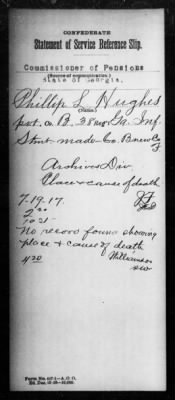 CONFEDERATE
Statement of Service Reference Slip.
Commissioner of Pensions
(Source of organization.)
State of Georgia.
Phillip L Hughes
(Name.)
pvt. Co. B. 38 Ga. Inf
Stmt made Co.
Archives Div
Place & cause of death
7-19-17.
No record found showing
place & cause of death
Williamson
Form No.